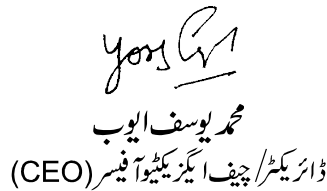 محمد یوسف ایوب
ڈائریکٹر/چیف ایگزیکٹیو آفیسر (CEO)